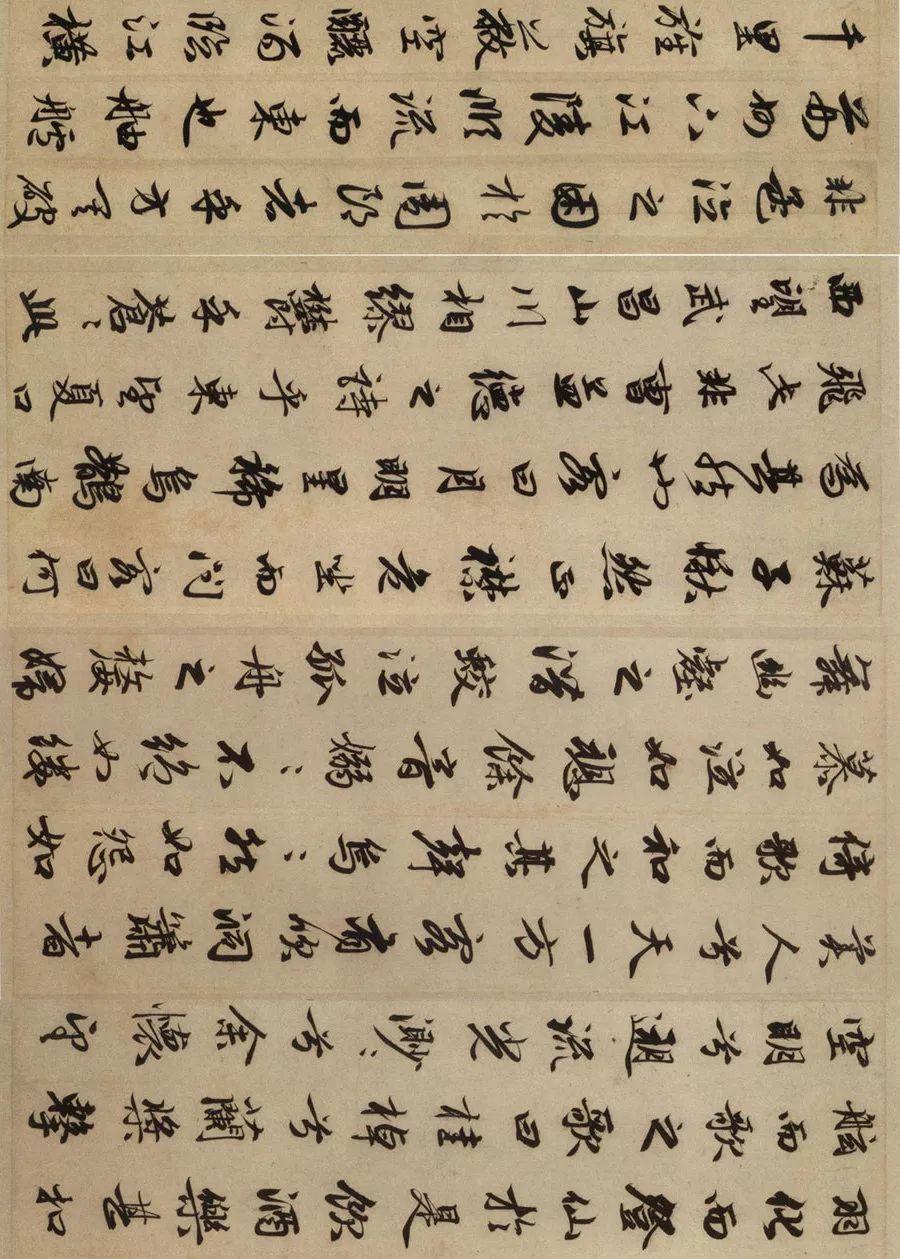 羽化而登仙於是飲酒樂甚扣
舷而歌之歌曰桂棹兮蘭槳擊
空明兮遡流光渺〻兮余懷望
美人兮天一方客有吹洞簫者
倚歌而和之其聲嗚〻然如怨如
慕如泣如愬餘音嫋〻不絕如縷
舞幽壑之潛蛟泣孤舟之嫠婦
蘇子愀然正襟危坐而問客曰何
為其然也客曰月明星稀烏鵲南
飛此非曹孟德之詩乎東望夏口
西望武昌山川相繆鬱乎蒼〻此
非孟德之困於周郎者乎方其破
荊州下江陵順流而東也舳艫
千里旌旗蔽空釃酒臨江橫